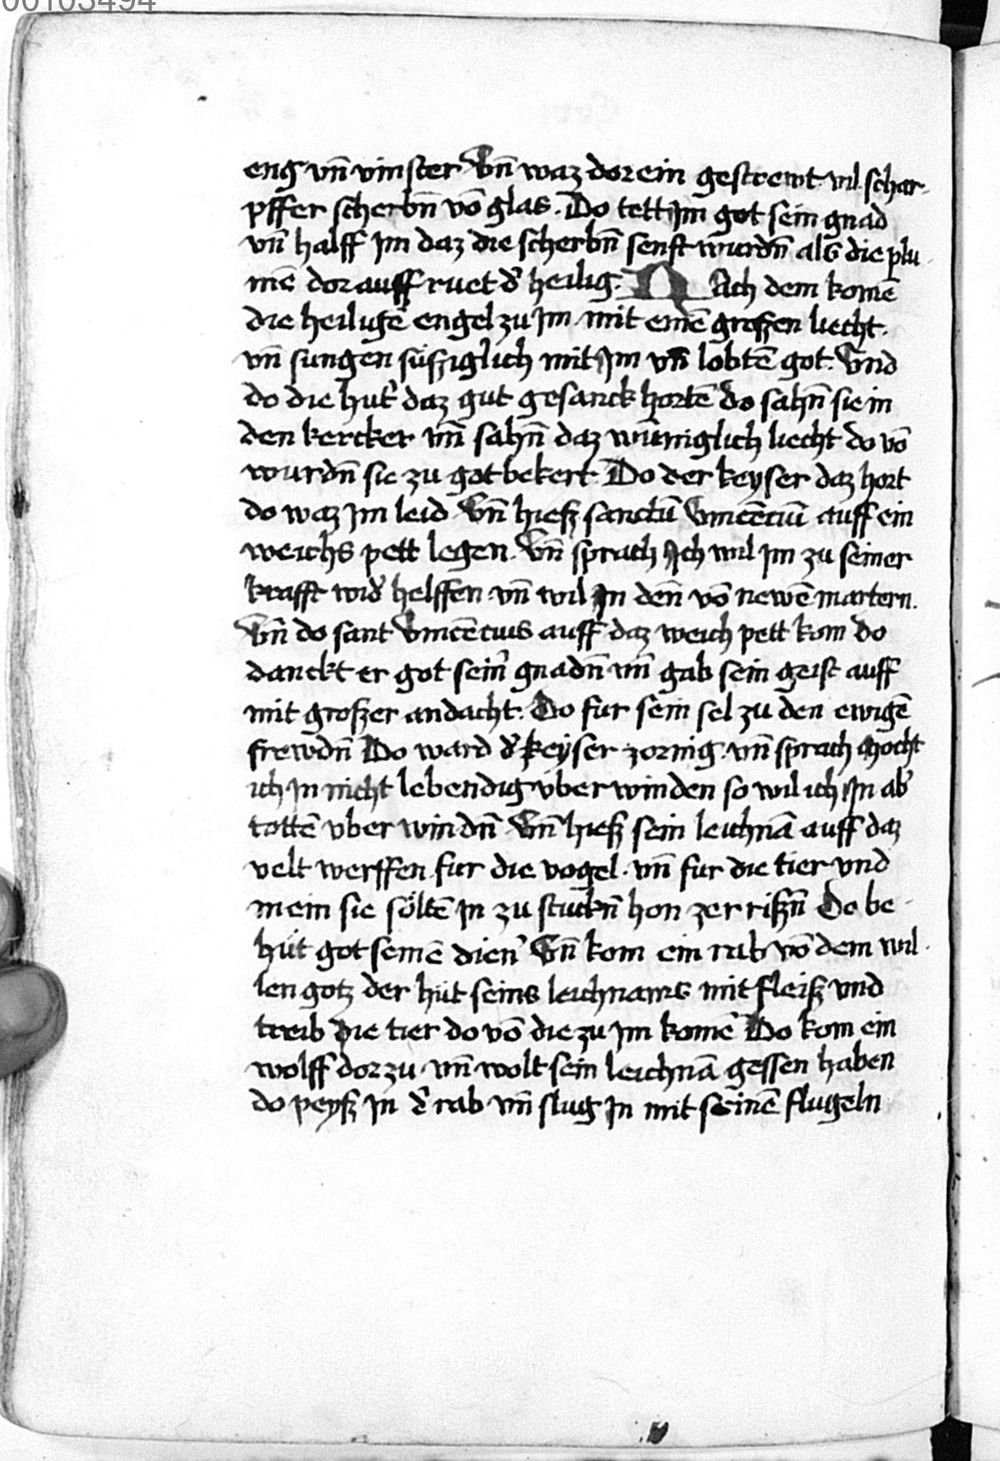 00103494
eng vn̄ vinster Vn̄ waz dorein gestrewt vil schar-
pffer scherbn̄ vō glas. Do tett Jm got sein gnad
vn̄ halff Jm daz die scherbn̄ senft wurdn̄ als die plu-
mē dorauff ruet d̓ heilig. NAch dem komē
die heiligē engel zu Jm mit einē groſzen liecht.
vn̄ sungen süſziglich mit Jm vn̄ lobtē got. Vnd
do die hut̓ daz gut gesanck hortē do sahn̄ sie in
den kercker vn̄ sahn̄ daz wūniglich liecht do vō
wurdn̄ sie zu got bekert Do der keyser daz hort
do waz Jm leid Vn̄ hieſz sanctū Vincēciū auff ein
weichs pett legen. Vn̄ sprach Jch wil Jm zu seiner
krafft wid̓ helffen vn̄ wil Jn den̄ vō newē martern.
Vn̄ do sant Vincēcius auff daz weich pett kom do
danckt er got sein̓ gnadn̄ vn̄ gab sein geist auff
mit groſzer andacht. Do fur sein sel zu den ewigē
frewdn̄ Do ward d̓ keyser zornig vn̄ sprach Mocht
ich Jn nicht lebendig vberwinden so wil ich Jn ab̓
tottē vberwindn̄ Vn̄ hieſz sein leichnā auff daz
velt werffen fur die vogel. vn̄ fur die tier vnd
mein sie söltē Jn zu stuckn̄ hon zerriſzn̄ Do be-
hüt got seinē dien̓ Vn̄ kom ein rab vō dem wil-
len gotz der hüt seins leichnams mit fleiſz vnd
treib die tier do vō die zu Jm komē Do kom ein
wolff dorzu vn̄ wolt sein leichnā gessen haben
do peyſz Jn d̓ rab vn̄ slug Jn mit seinē flugeln